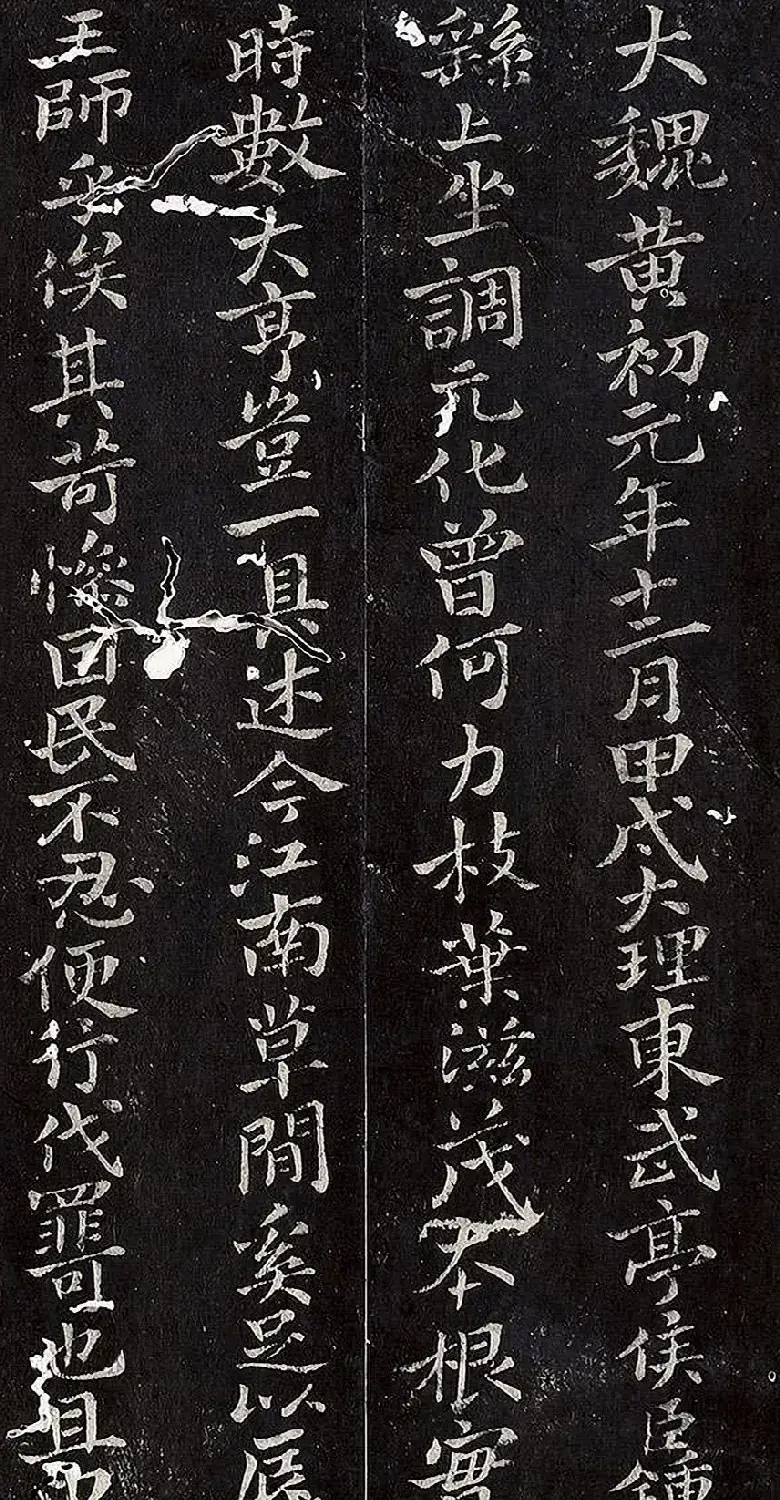 大魏黄初元年十二月甲戌大理東武亭侯臣鍾
繇上坐調元化曾何力枝葉滋茂本根實
時數大亨豈一具述今江南草間奚足以辱
王師乎俟其苛慘困民不忍便行伐罪可也且